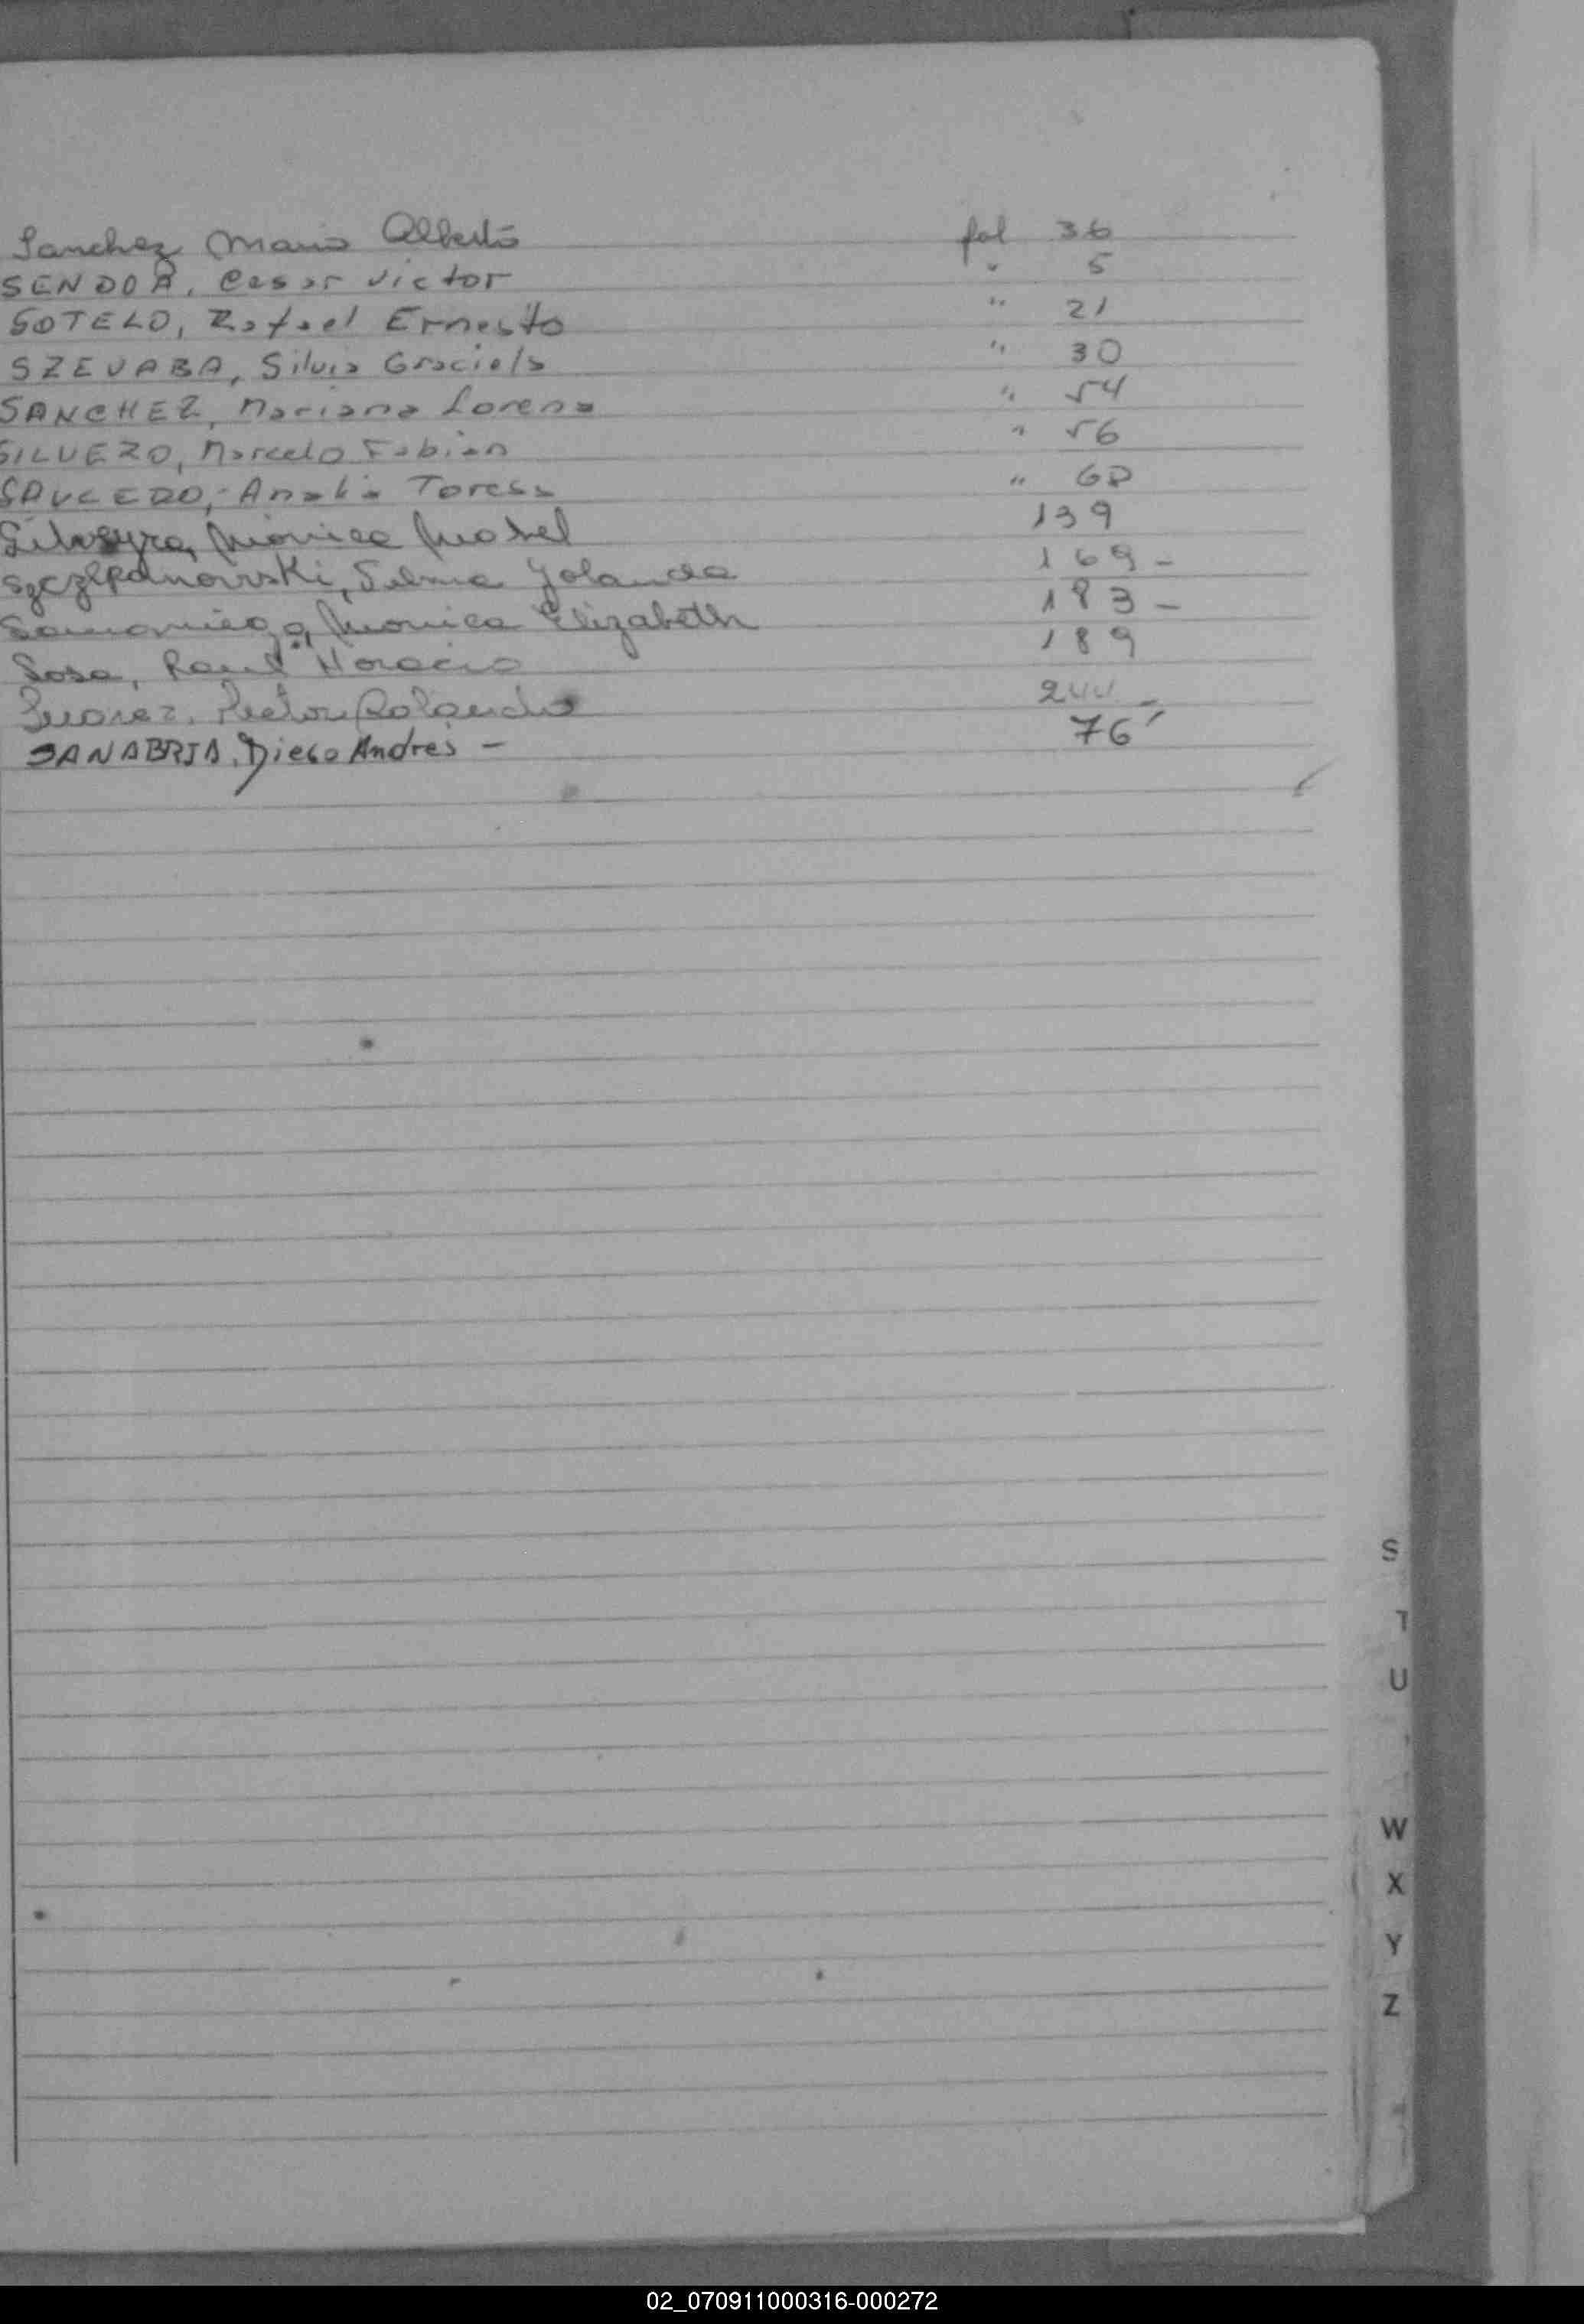 Sanchez Mario Alberto fol 36
SENDOA, Cesar Victor " 5
SOTELO, Rafael Ernesto " 21
SZEVABA, Silvia Graciela " 30
SANCHEZ, Mariana Lorena " 54
SILVERO, Marcelo Fabian " 56
SAUCEDO, Analia Teresa " 68
Silveyra, Mónica Mabel 139
Szczepanowski, Selma Yolanda 169 -
Samaniego, Monica Elizabeth 183 -
Sosa, Raul Horacio 189
Suarez, Rolando 244 -
SANABRIA, Diego Andres - 76
S
T
U
W
X
Y
Z
02_070911000316-000272